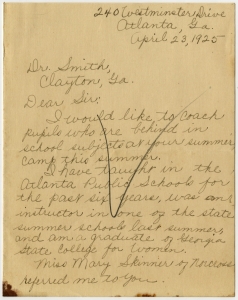 240 Westminster Drive
Atlanta, Ga.
April 23, 1925
Dr. Smith,
Clayton, Ga.
Dear Sir:
I would like to coach
pupils who are behind in
school subjects at your summer
camp this summer.
I have taught in the
Atlanta Public Schools for
the past six years, was an
instructor in one of the state
summer schools last summer,
and am a graduate of Georgia
State College for Women.
Miss Mary Skinner of Norcross
referred me to you.